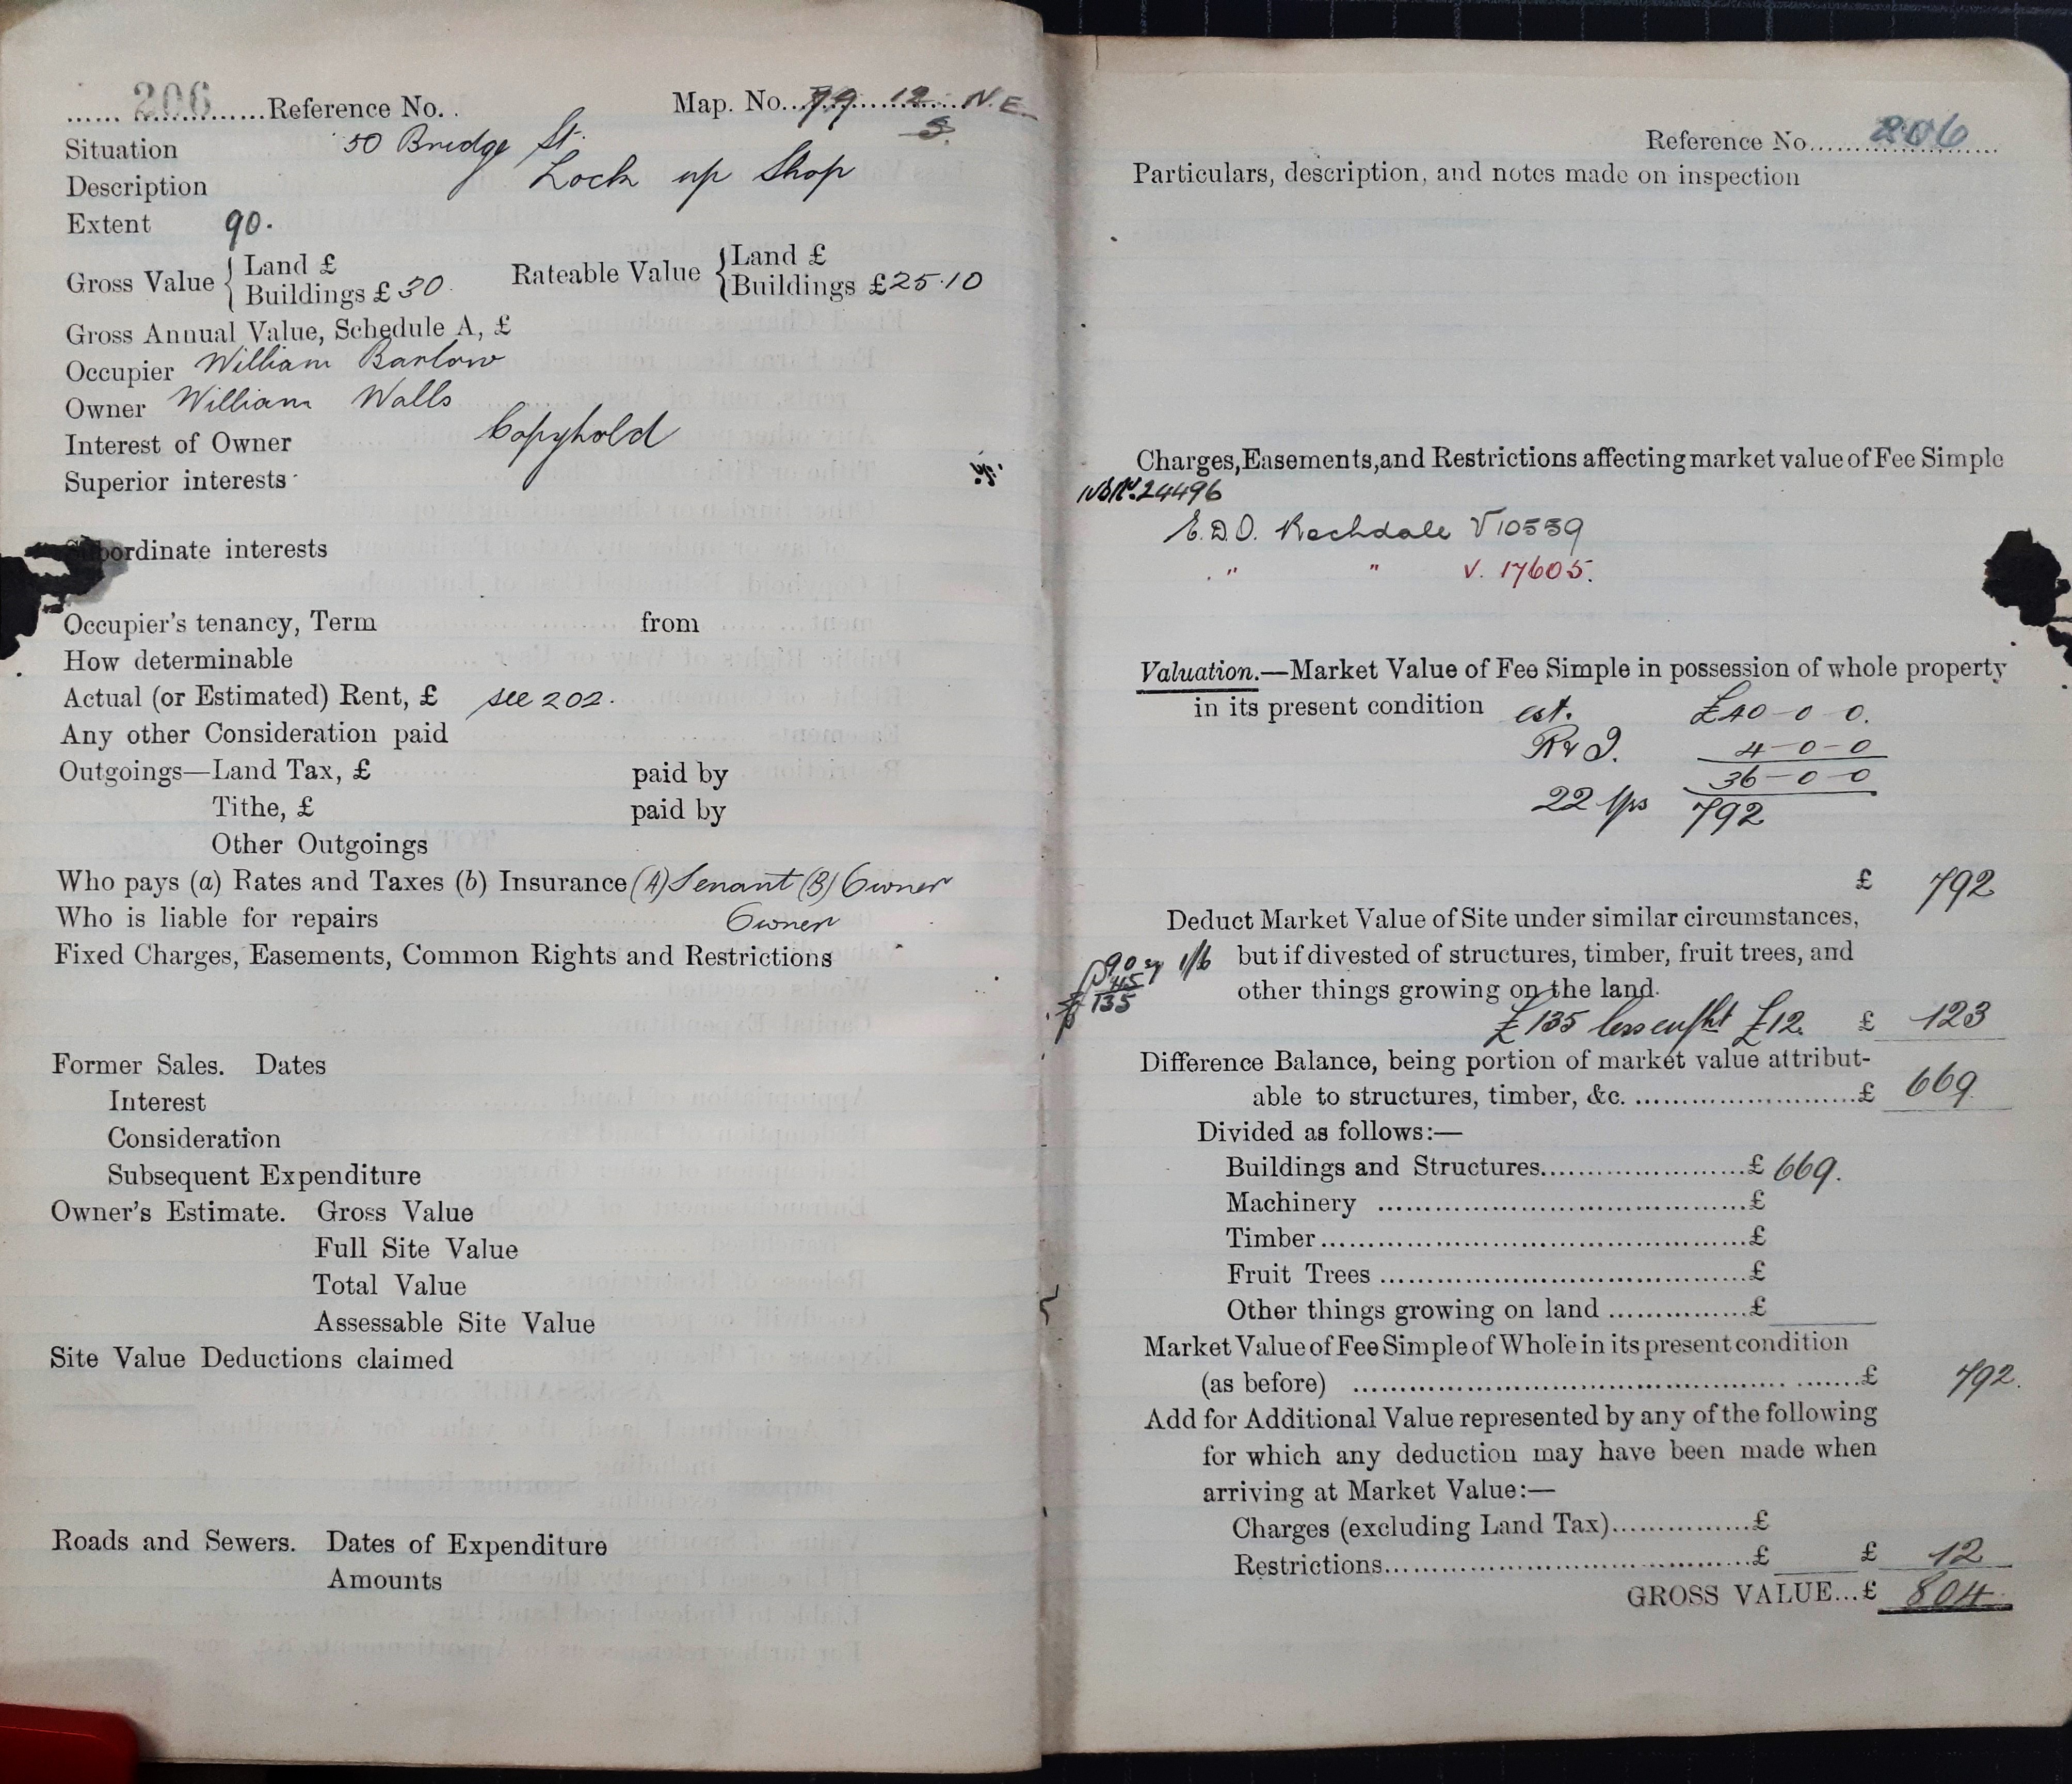 206 Reference No.
Map. No. 79 12 N.E.
3.
Situation 50 Bridge St.
Description Lock up Shop
Extent 90.
Gross Value { Land £
Buildings £ 30.
Rateable Value { Land £
Buildings £25.10
Gross Annual Value, Schedule A, £
Occupier William Barlow
Owner William Walls
Interest of Owner Copyhold
Superior interests
Subordinate interests
Occupier's tenancy, Term from
How determinable
Actual (or Estimated) Rent, £ see 202.
Any other Consideration paid
Outgoings—Land Tax, £ paid by
Tithe, £ paid by
Other Outgoings
Who pays (a) Rates and Taxes (b) Insurance (A) Tenant (B) Owner
Who is liable for repairs Owner
Fixed Charges, Easements, Common Rights and Restrictions
Former Sales. Dates
Interest
Consideration
Subsequent Expenditure
Owner's Estimate. Gross Value
Full Site Value
Total Value
Assessable Site Value
Site Value Deductions claimed
Roads and Sewers. Dates of Expenditure
Amounts
Reference No. 206
Particulars, description, and notes made on inspection
Charges, Easements, and Restrictions affecting market value of Fee Simple
24496
E.D.O. Rochdale V 10559
" " V. 17605.
Valuation.—Market Value of Fee Simple in possession of whole property
in its present condition est. £40-0-0.
R & I. 4-0-0
36-0-0
22 yrs 792
£ 792
Deduct Market Value of Site under similar circumstances,
90 sy 1/6 but if divested of structures, timber, fruit trees, and
45
135 other things growing on the land.
£135 less enfht £12. £ 123
Difference Balance, being portion of market value attribut-
able to structures, timber, &c. £ 669
Divided as follows:—
Buildings and Structures £ 669.
Machinery £
Timber £
Fruit Trees £
Other things growing on land £
Market Value of Fee Simple of Whole in its present condition
(as before) £ 792.
Add for Additional Value represented by any of the following
for which any deduction may have been made when
arriving at Market Value:—
Charges (excluding Land Tax) £
Restrictions £ £ 12
GROSS VALUE...£ 804